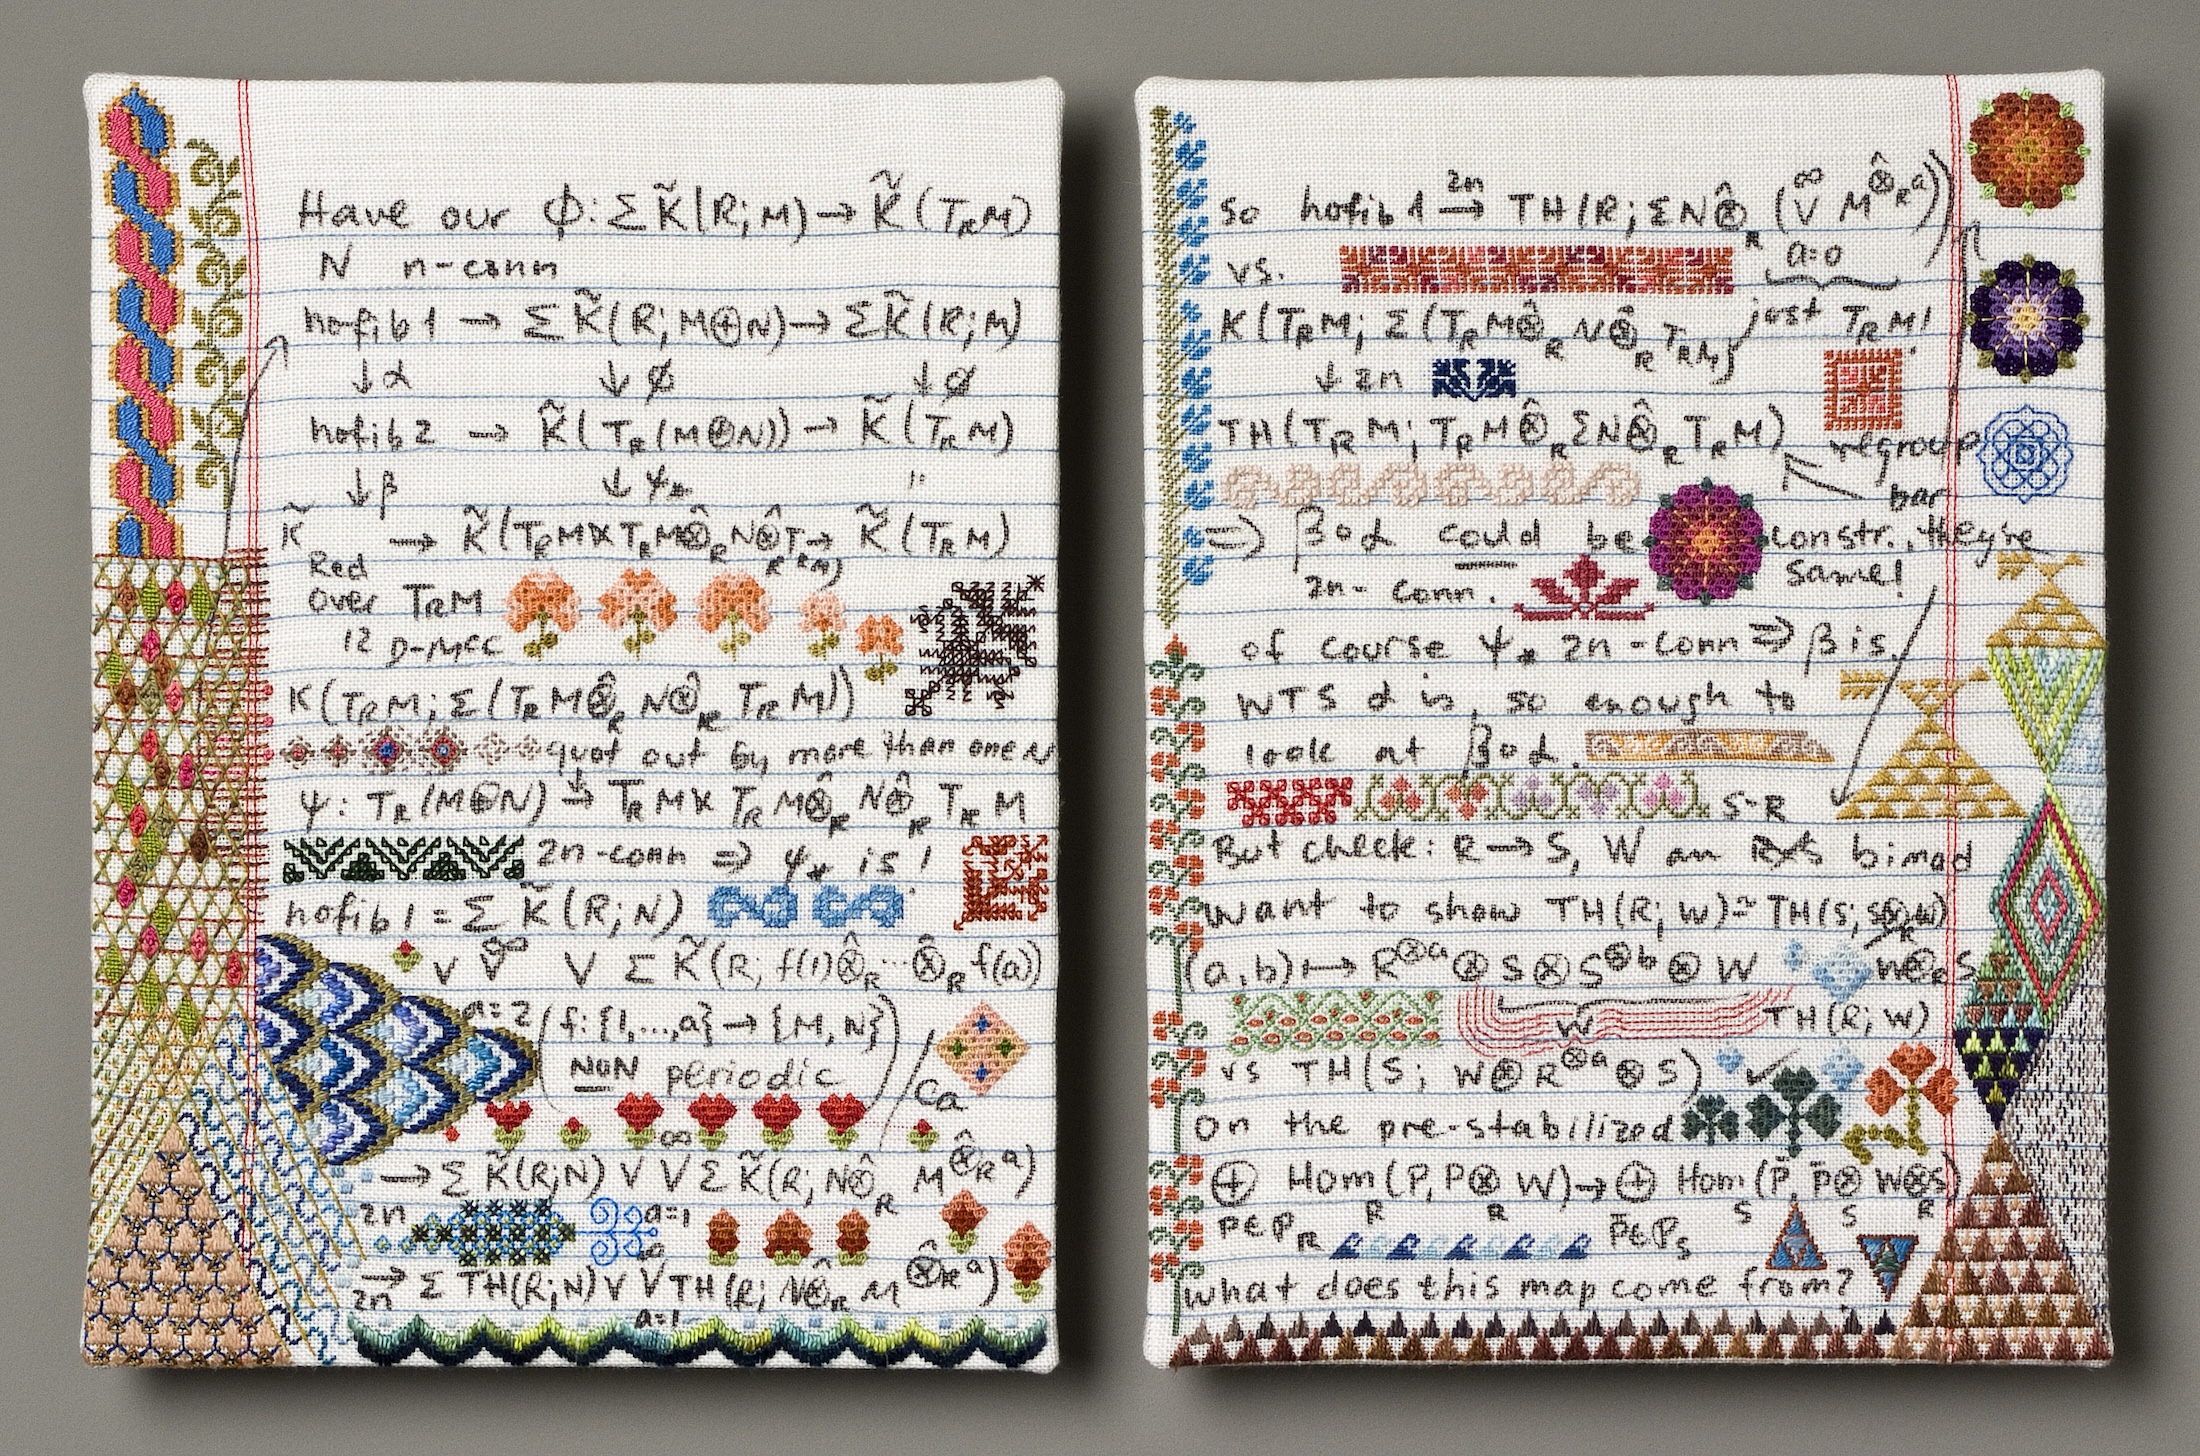 Have our ϕ: Σ K̃(R; M) → K̃(T_R M)
N n-conn
hofib 1 → Σ K̃(R; M⊕N) → Σ K̃(R; M)
↓α ↓ϕ ↓ϕ
hofib 2 → K̃(T_R(M⊕N)) → K̃(T_R M)
↓β ↓ψ_* "
K̃ → K̃(T_R M ⋉ T_R M ⊗̂_R N ⊗̂_R T_R M) → K̃(T_R M)
Red
over T_R M
12 D-McC
K(T_R M; Σ(T_R M ⊗̂_R N ⊗̂_R T_R M))
quot out by more than one N
ψ: T_R(M⊕N) → T_R M ⋉ T_R M ⊗̂_R N ⊗̂_R T_R M
2n-conn ⇒ ψ_* is!
hofib 1 = Σ K̃(R; N)
∨ ⋁^∞ ⋁ Σ K̃(R; f(1) ⊗̂_R ... ⊗̂_R f(a))
a=2 (f: {1,...,a} → {M, N}
NON periodic) / C_a
→ Σ K̃(R; N) ∨ ⋁^∞ Σ K̃(R; N ⊗̂_R M^{⊗̂_R a})
2n a=1
→ Σ TH(R; N) ∨ ⋁^∞ TH(R; N ⊗̂_R M^{⊗̂_R a})
2n a=1
So hofib 1 →^{2n} TH(R; ΣN ⊗̂_R (⋁^∞ M^{⊗̂_R a}))
vs. a=0
K(T_R M; Σ(T_R M ⊗̂_R N ⊗̂_R T_R M)) just T_R M!
↓ 2n
TH(T_R M; T_R M ⊗̂_R ΣN ⊗̂_R T_R M)
regroup
bar
⇒ β∘α could be constr., they're
2n-conn. same!
of course ψ_* 2n-conn ⇒ β is.
WTS α is, so enough to
look at β∘α.
S-R
But check: R → S, W an R-S bimod
want to show TH(R; W) ≃ TH(S; S⊗_R W)
(a,b) ↦ R^{⊗a} ⊗ S ⊗ S^{⊗b} ⊗ W W⊗_R S
W TH(R; W)
vs TH(S; W ⊗ R^{⊗a} ⊗ S) ✓
On the pre-stabilized
⊕ Hom(P, P⊗W) → ⊕ Hom(P̄, P̄⊗W⊗S)
P∈P_R R R P̄∈P_S S S R
what does this map come from?